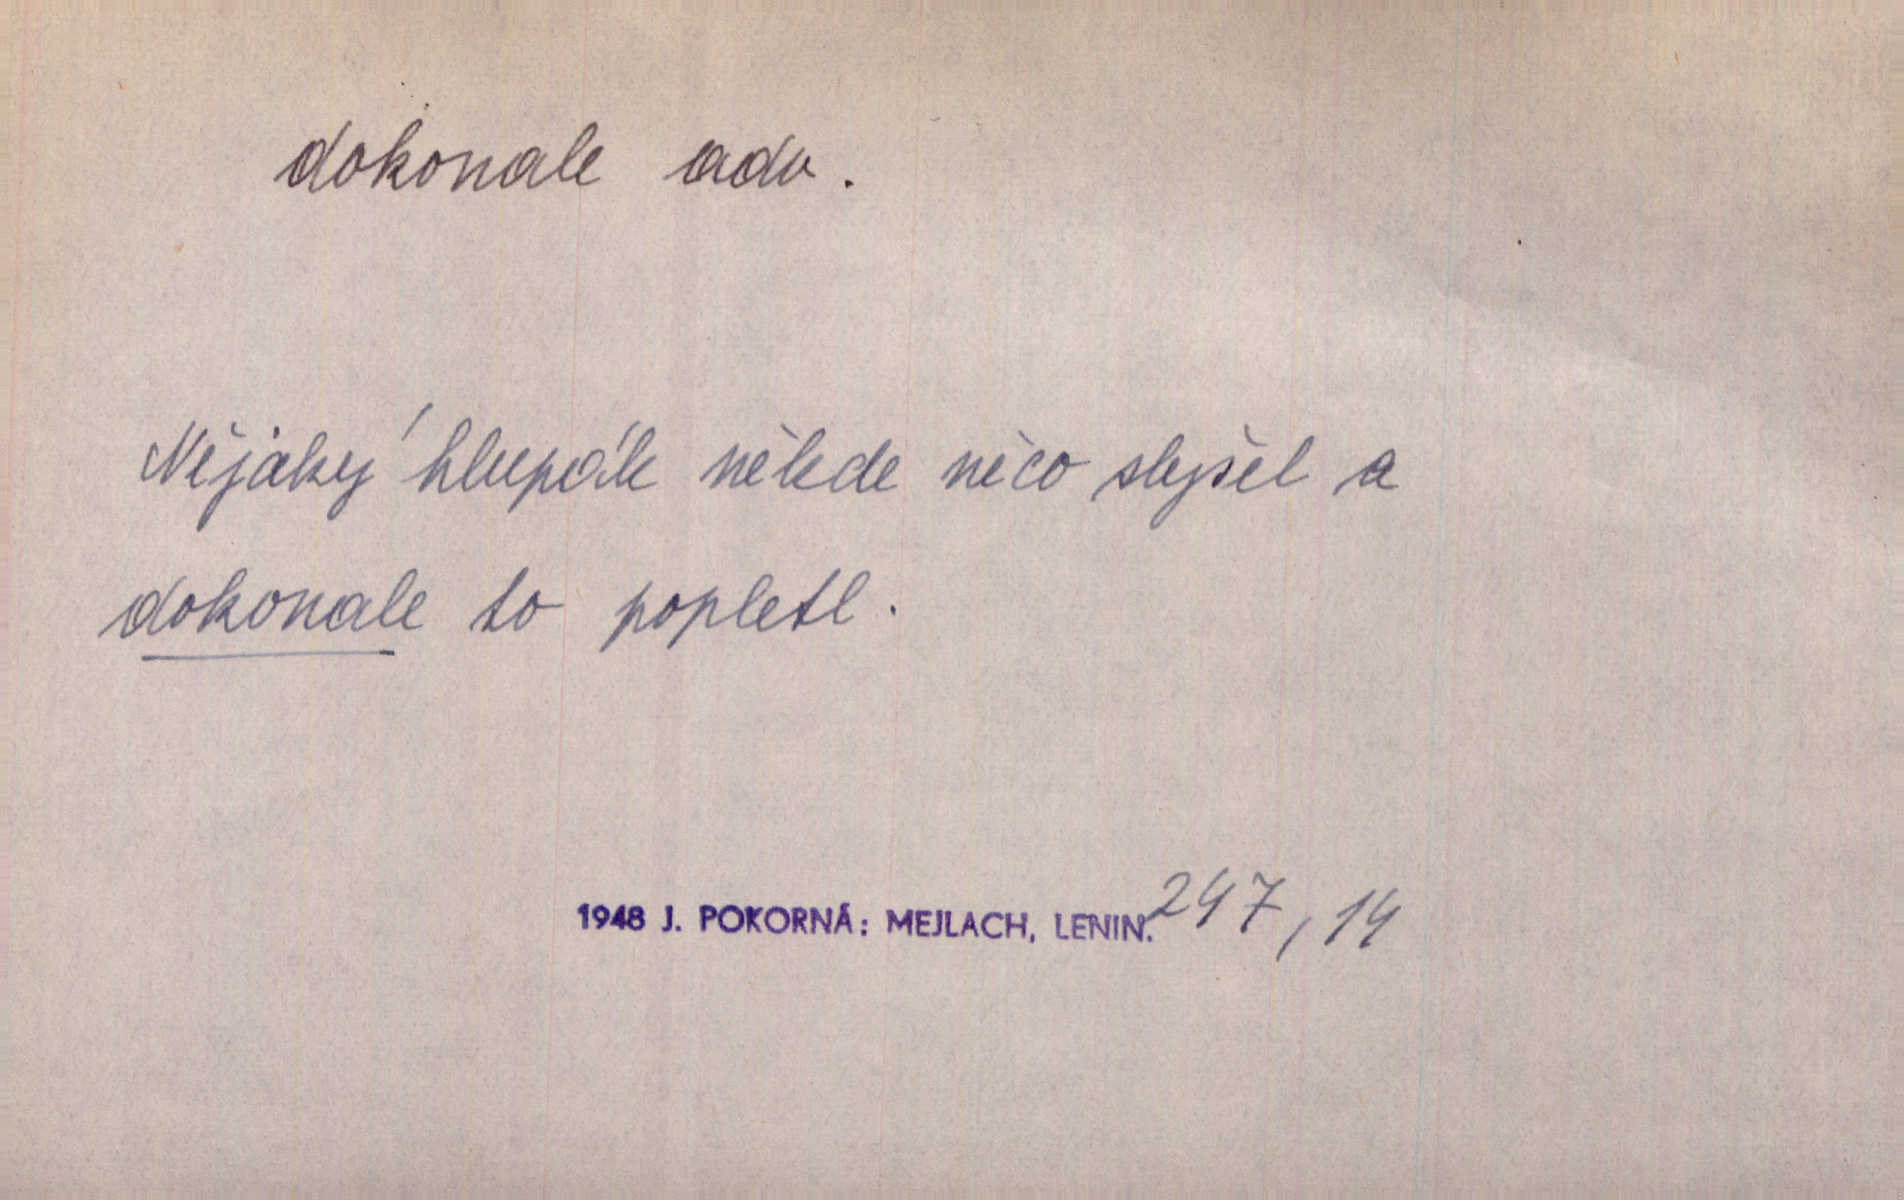 dokonale adv.
Nějaký hlupák někde něco slyšel a
dokonale to popletl.
1948 J. POKORNÁ: MEJLACH, LENIN. 247, 14